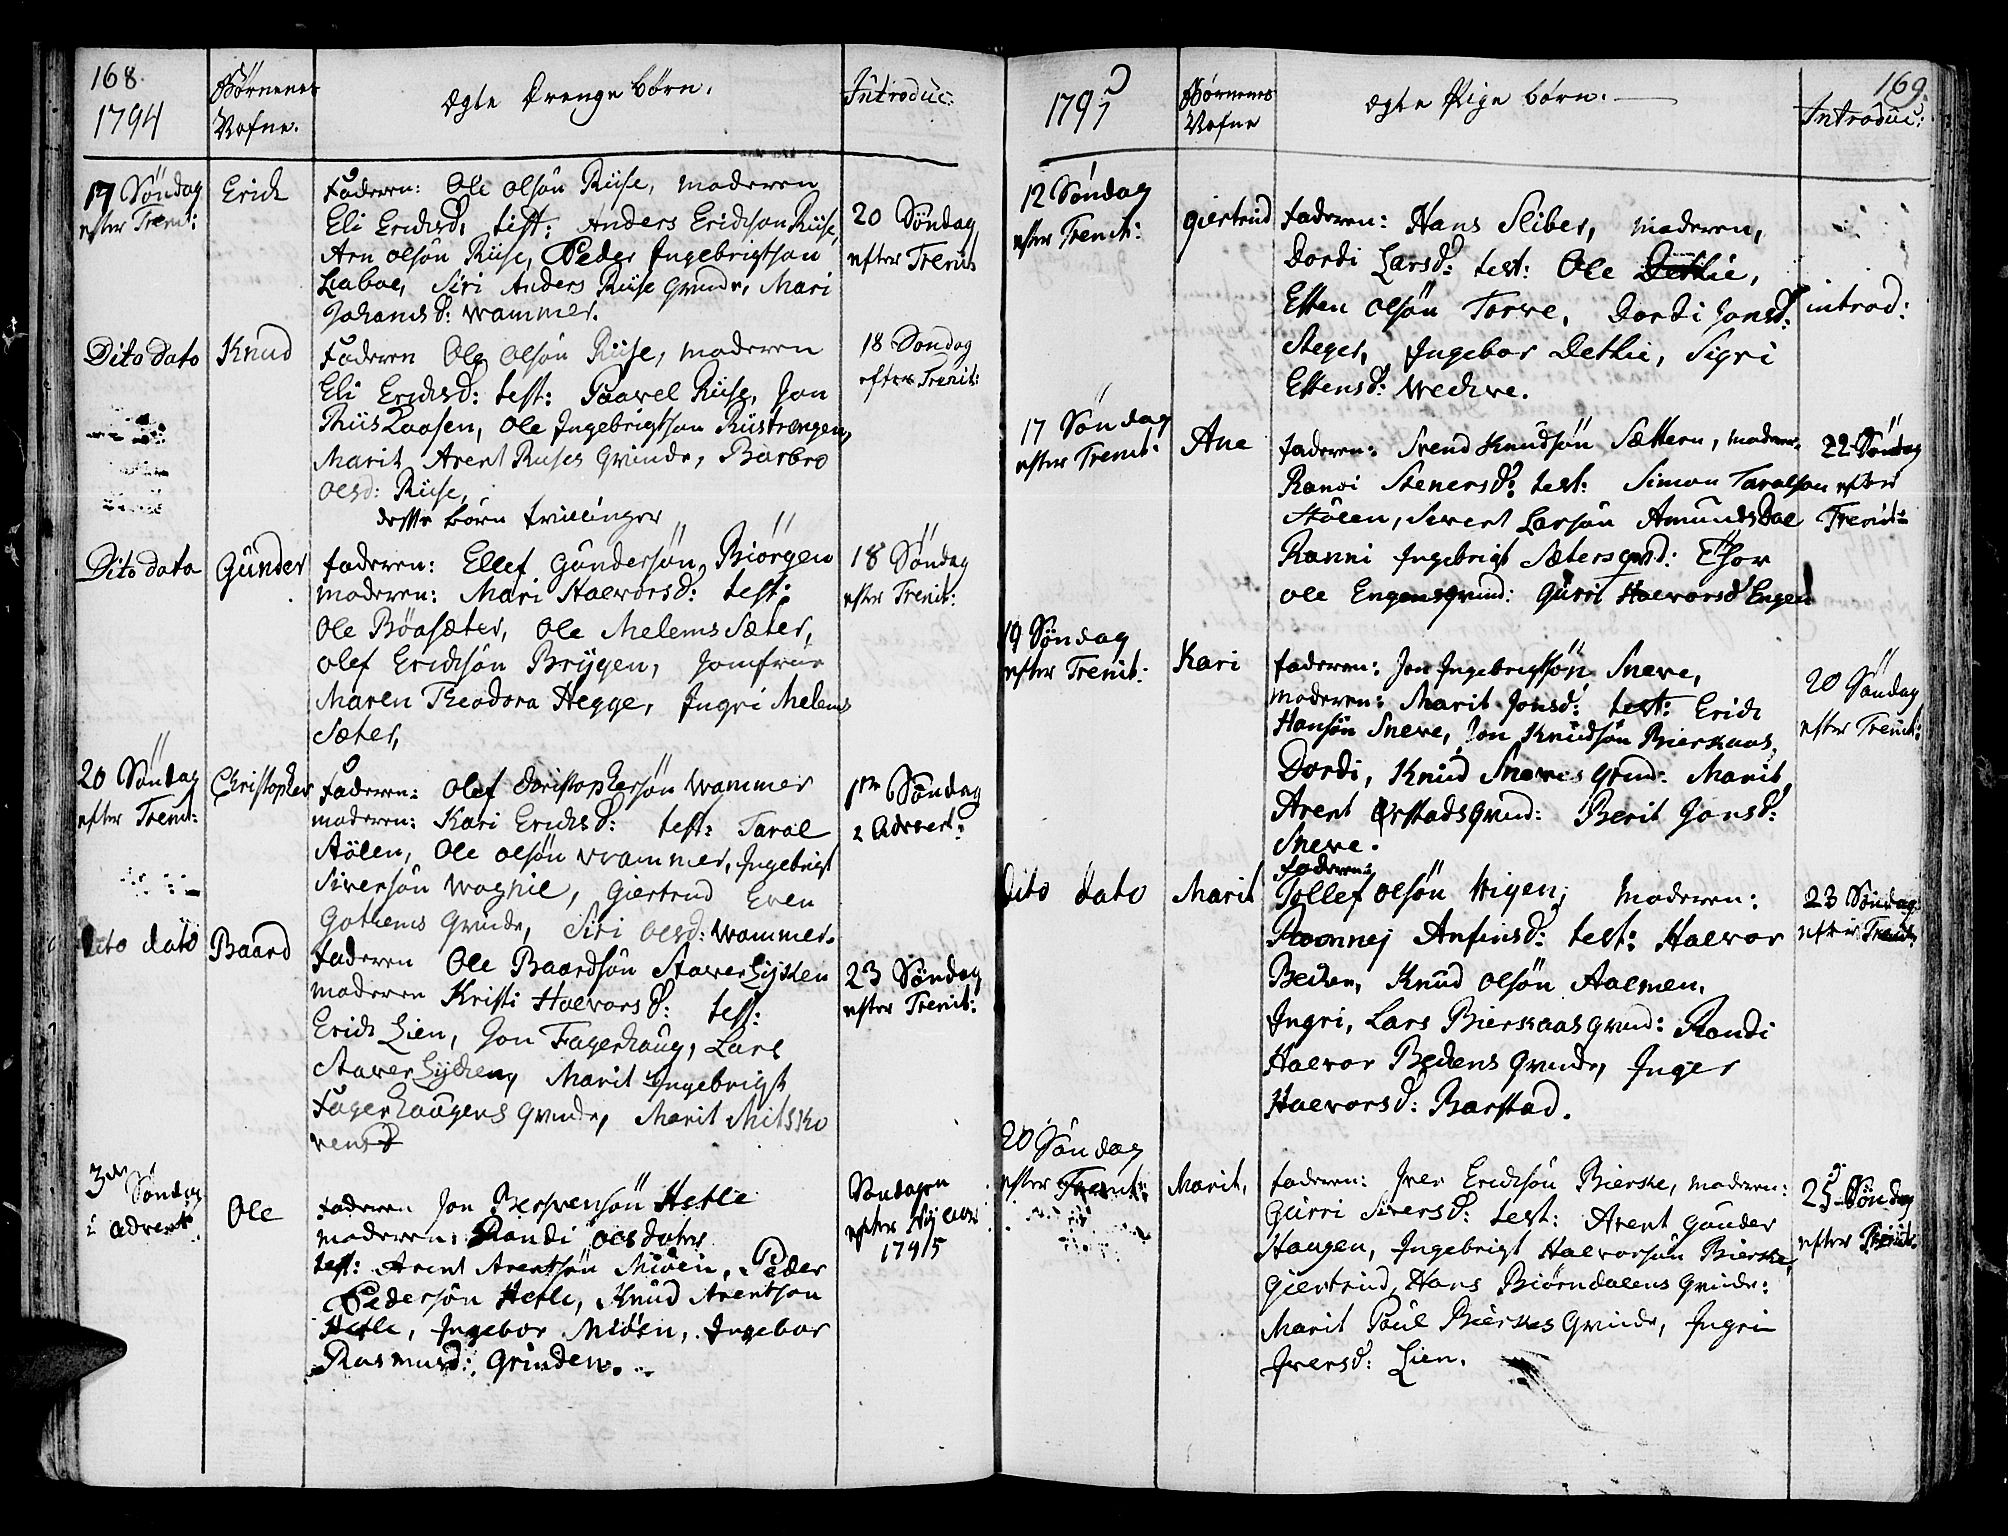 168.
1794
Børnenes
Nafne.
Ægte Drenge børn.
Introduc:
17 Søndag
efter Trenit:
Erich
Faderen: Ole Olsön Riise, moderen
Eli Erichsd. test: Anders Erichson Riise,
Arn Olsön Riise, Peder Ingebrigtson
Laboe, Siri Anders Riise qvinde, Mari
Johansd: Wammer.
20 Søndag
efter Trenit
Dito dato
Knud
Faderen Ole Olsön Riise, moderen
Eli Erichsd: test: Paavel Riise, Jon
Riis Laasen, Ole Ingebrigtson Riistrengen,
Marit Arent Rises qvinde, Barbro
Olsd: Riise,
desse børn tvillinger
18 Søndag
efter Trenit:
Dito dato
Gunder
faderen: Ellef Gundersön, Biörgen
moderen: Mari Halvorsd: test:
Ole Böasæter, Ole Melems Sæter,
Olef Erichsön Brygen, Jomfrue
Maren Theodora Hegge, Ingri Melems
Sæter,
18 Søndag
efter Trenit:
20 Søndag
efter Trenit:
Christopher
faderen: Olef Christophersön Wammer
moderen: Kari Erichsd: test: Taral
Stölen, Ole Olsön Wammer, Ingebrigt
Siversön Wognil, Giertrud Even
Gothems qvinde, Siri Olsd: Wammer.
1ste Søndag
i Advent:
Dito dato
Baard
faderen Ole Baardsön Staverlykken
moderen Kristi Halvorsd: test:
Erich Lien, Jon Fagerhaug, Lars
Staverlychen, Marit Ingebrigt
Fagerhaugens qvinde, Marit Mitsko
vensd
23 Søndag
efter Trenit:
3de Søndag
i Advent:
Ole
faderen Jon Bersvensön Hetle
moderen: Randi Olsdater
test: Arent Arentsön Miöen, Peder
Pedersön Hetle, Knud Arentson
Hetle, Ingebor Miöen, Ingebor
Rasmusd: Grinden.
Søndagen
efter Nyaar
1795
169.
Børnenes
Nafne
Ægte Pige børn.
Introduc:
12 Søndag
efter Trenit:
Giertrud
faderen: Hans Sliber, moderen,
Dordi Larsd: test: Ole Dethie,
Esten Olsön Torve, Dordi Jonsd:
Steger, Ingebor Dethie, Sigri
Estensd: Wechve.
introd:
17 Søndag
efter Trenit:
Ane
faderen: Svend Knudsön Sættern, moderen
Ranoi Stenersd: test: Simon Taralson
Stölen, Sivert Larsön Amundsdal
Ranni Ingebrigt Sætersqvd: Thor
Ole Engensqvind: Gurri Halvorsd Engen
22 Søndag
efter
Trenit:
19 Søndag
efter Trenit:
Kari
faderen: Jon Ingebrigtsön Sneve,
moderen: Marit Jonsd: test: Erich
Hansön Sneve, Jon Knudsön Bierkaas,
Dordi, Knud Sneves qvind: Marit,
Arent Ørstadsqvind: Berit Jonsd:
Sneve.
20 Søndag
efter Trenit:
Dito dato
Marit
faderen:
Tollef Olsön Wigen, moderen:
Ronnej Anfinsd: test: Halvor
Becken, Knud Olsön Aalmen,
Ingri, Lars Bierkaasqvind: Randi
Halvor Beckens qvinde, Inger
Halvorsd: Barstad.
23 Søndag
efter Trenit:
20 Søndag
efter Trenit:
Marit,
faderen: Iver Erichsön Bierske, moderen:
Gurri Siversd: test: Arent Gunder
Haugen, Ingebrigt Halvorsön Bierske,
Giertrud, Hans Biörndalens qvinde:
Marit Poul Bierskes qvinde, Ingri
Iversd: Lien.
25 Søndag
efter Trenit: